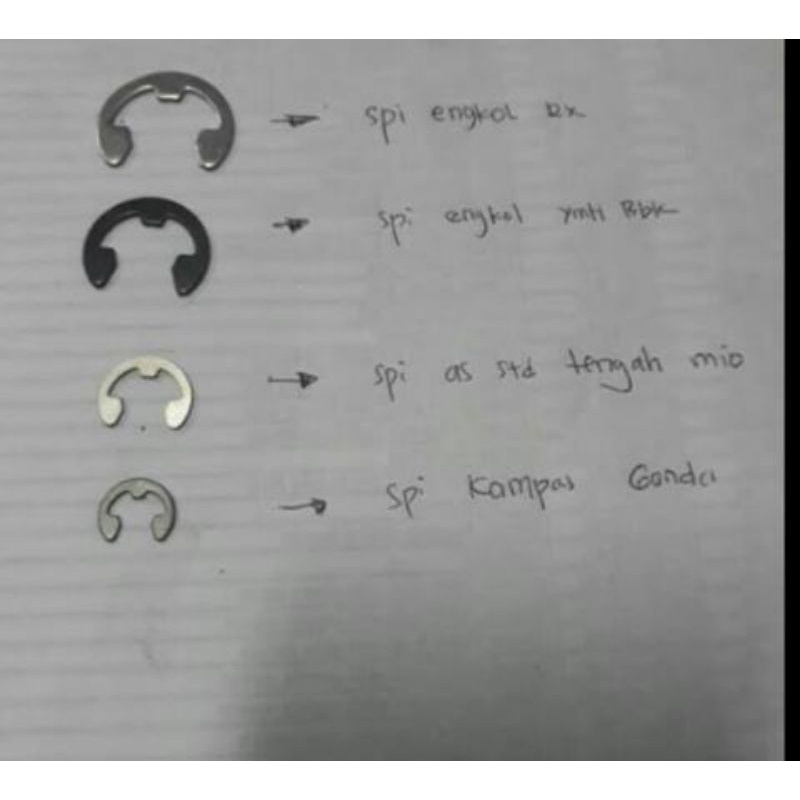 spi engkol Rx
spi engkol ymh Bbk
spi as std tengah mio
spi kampas Ganda